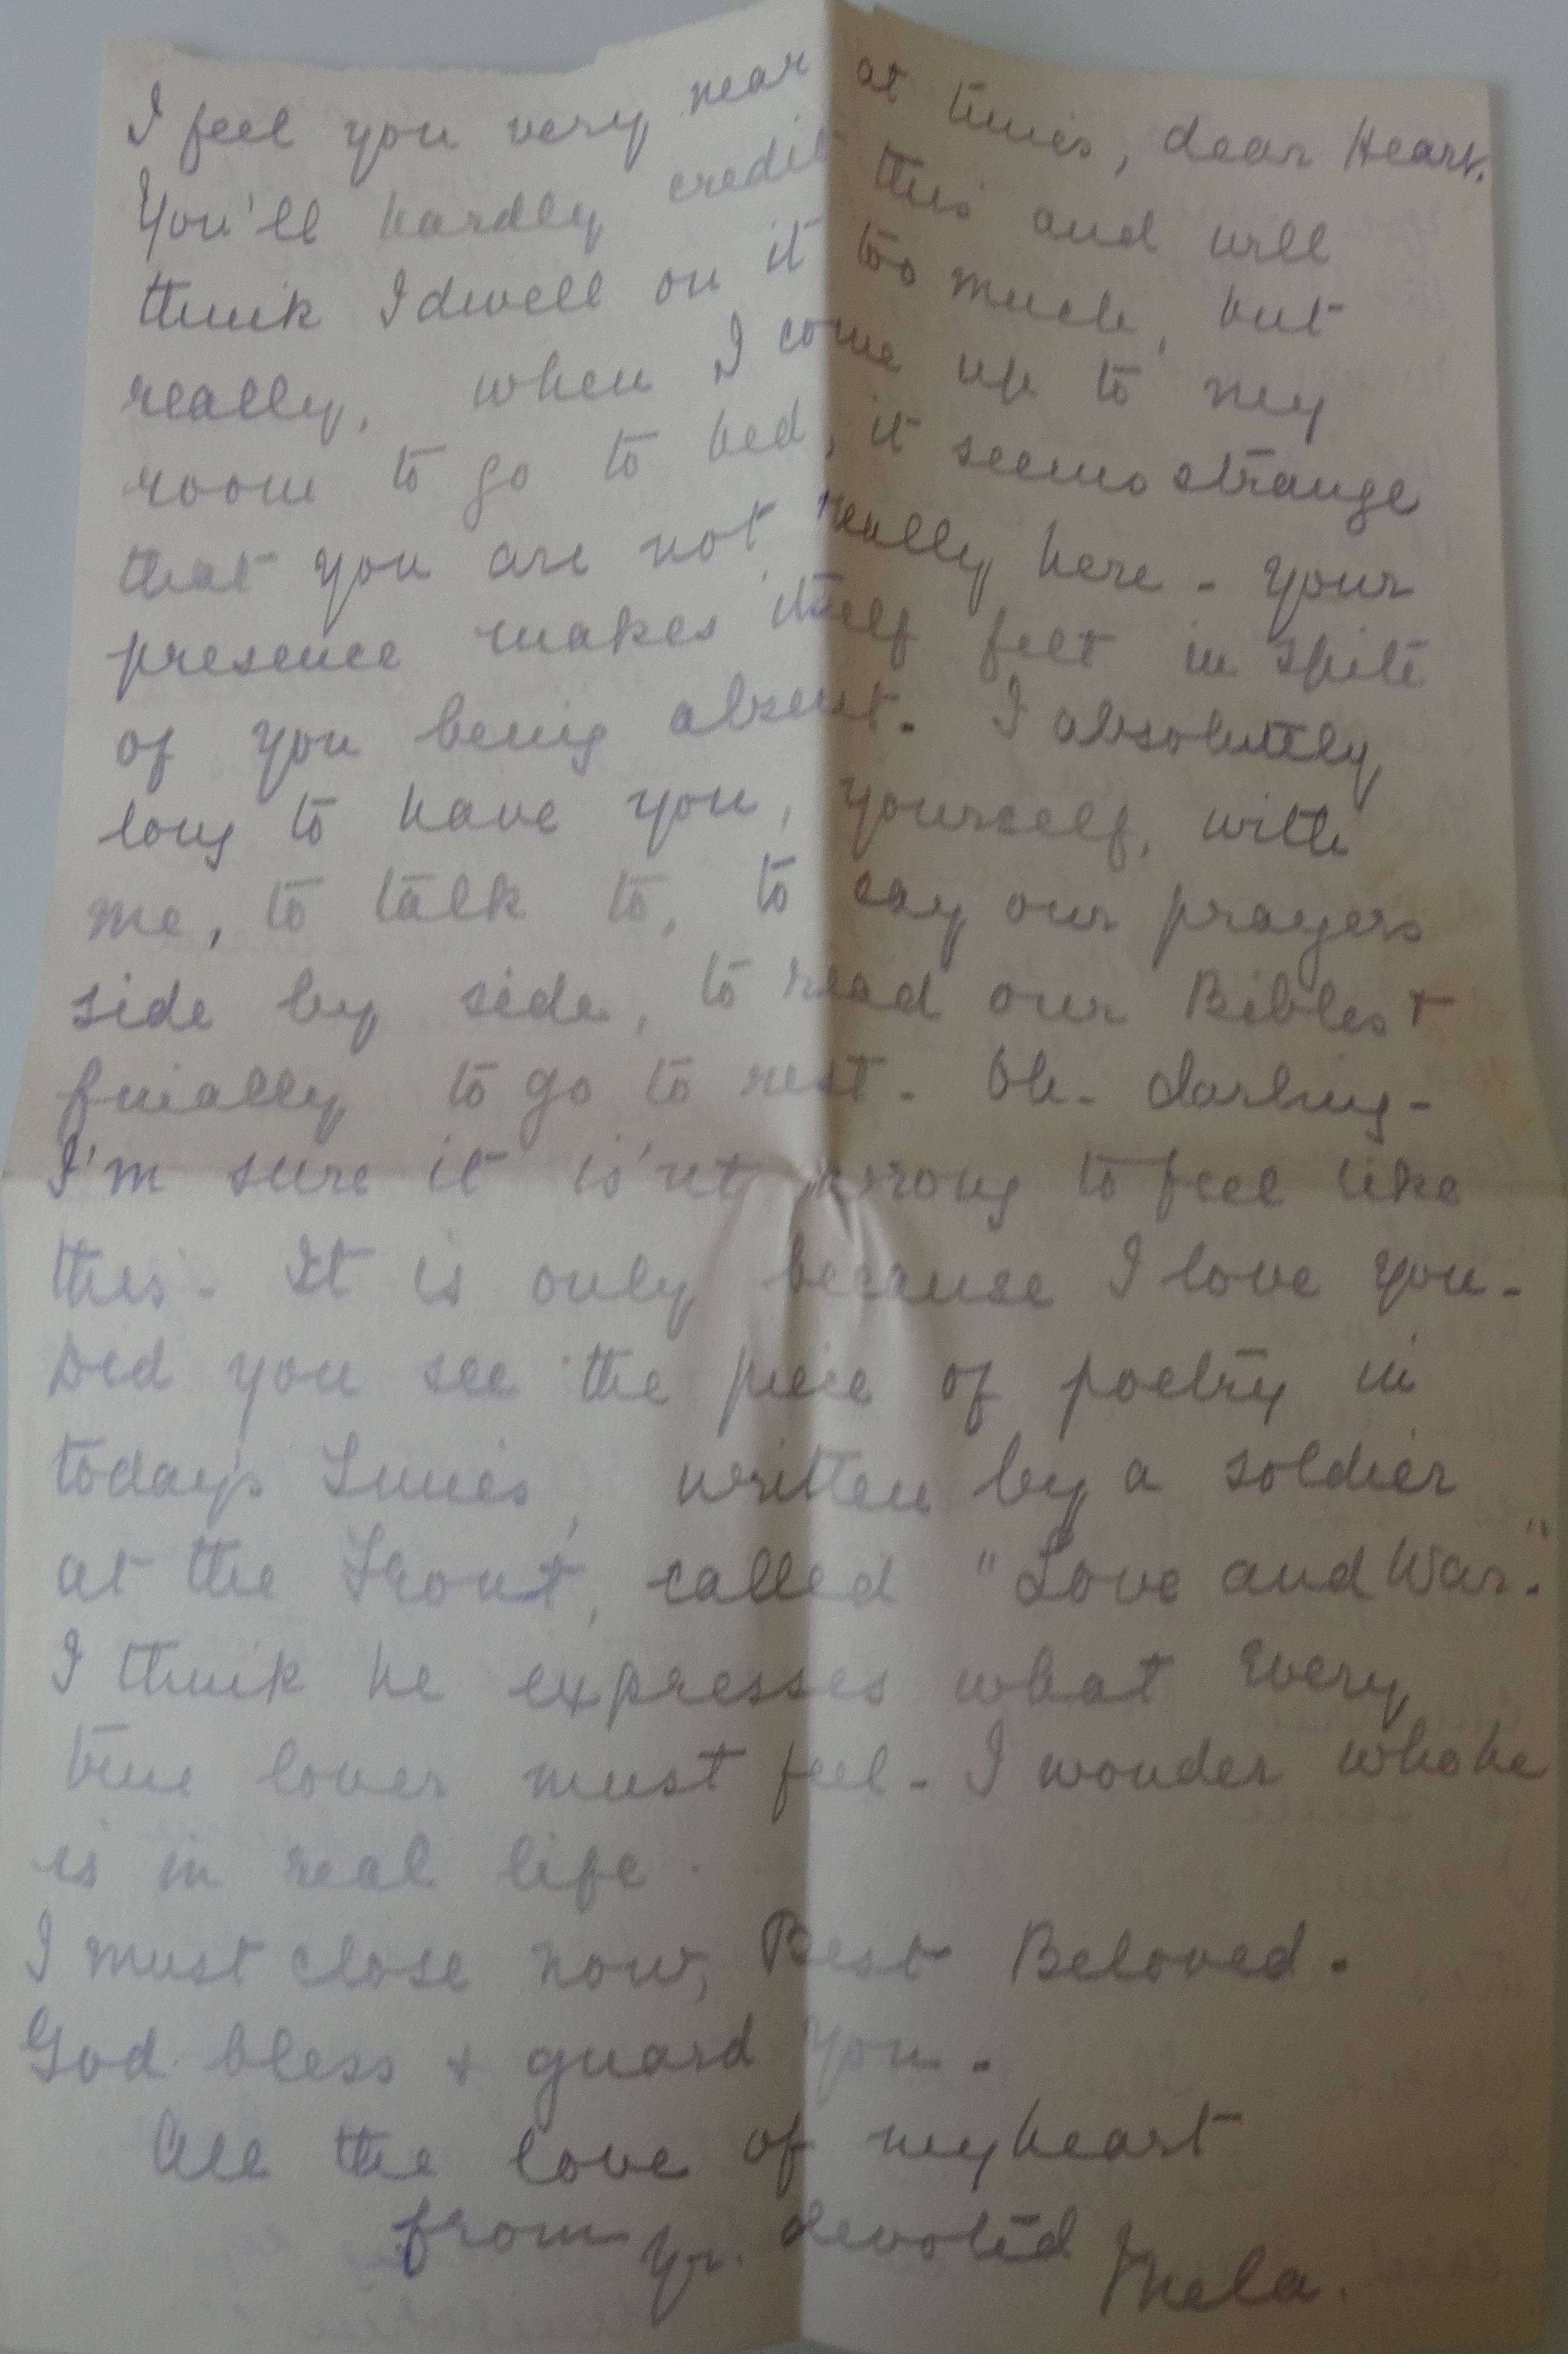 I feel you very near at times, dear Heart.
You'll hardly credit this and will
think I dwell on it too much, but
really, when I come up to my
room to go to bed, it seems strange
that you are not really here - your
presence makes itself felt in spite
of you being absent. I absolutely
long to have you, yourself, with
me, to talk to, to say our prayers
side by side, to read our Bibles +
finially to go to rest. Oh - darling -
I'm sure it is'nt wrong to feel like
this - It is only because I love you -
Did you see the piece of poetry in
today's Times, written by a soldier
at the Front, called "Love and War."
I think he expresses what every
true lover must feel - I wonder who he
is in real life.
I must close now, Best Beloved.
God bless & guard you -
All the love of my heart
from yr. devoted
Mela.